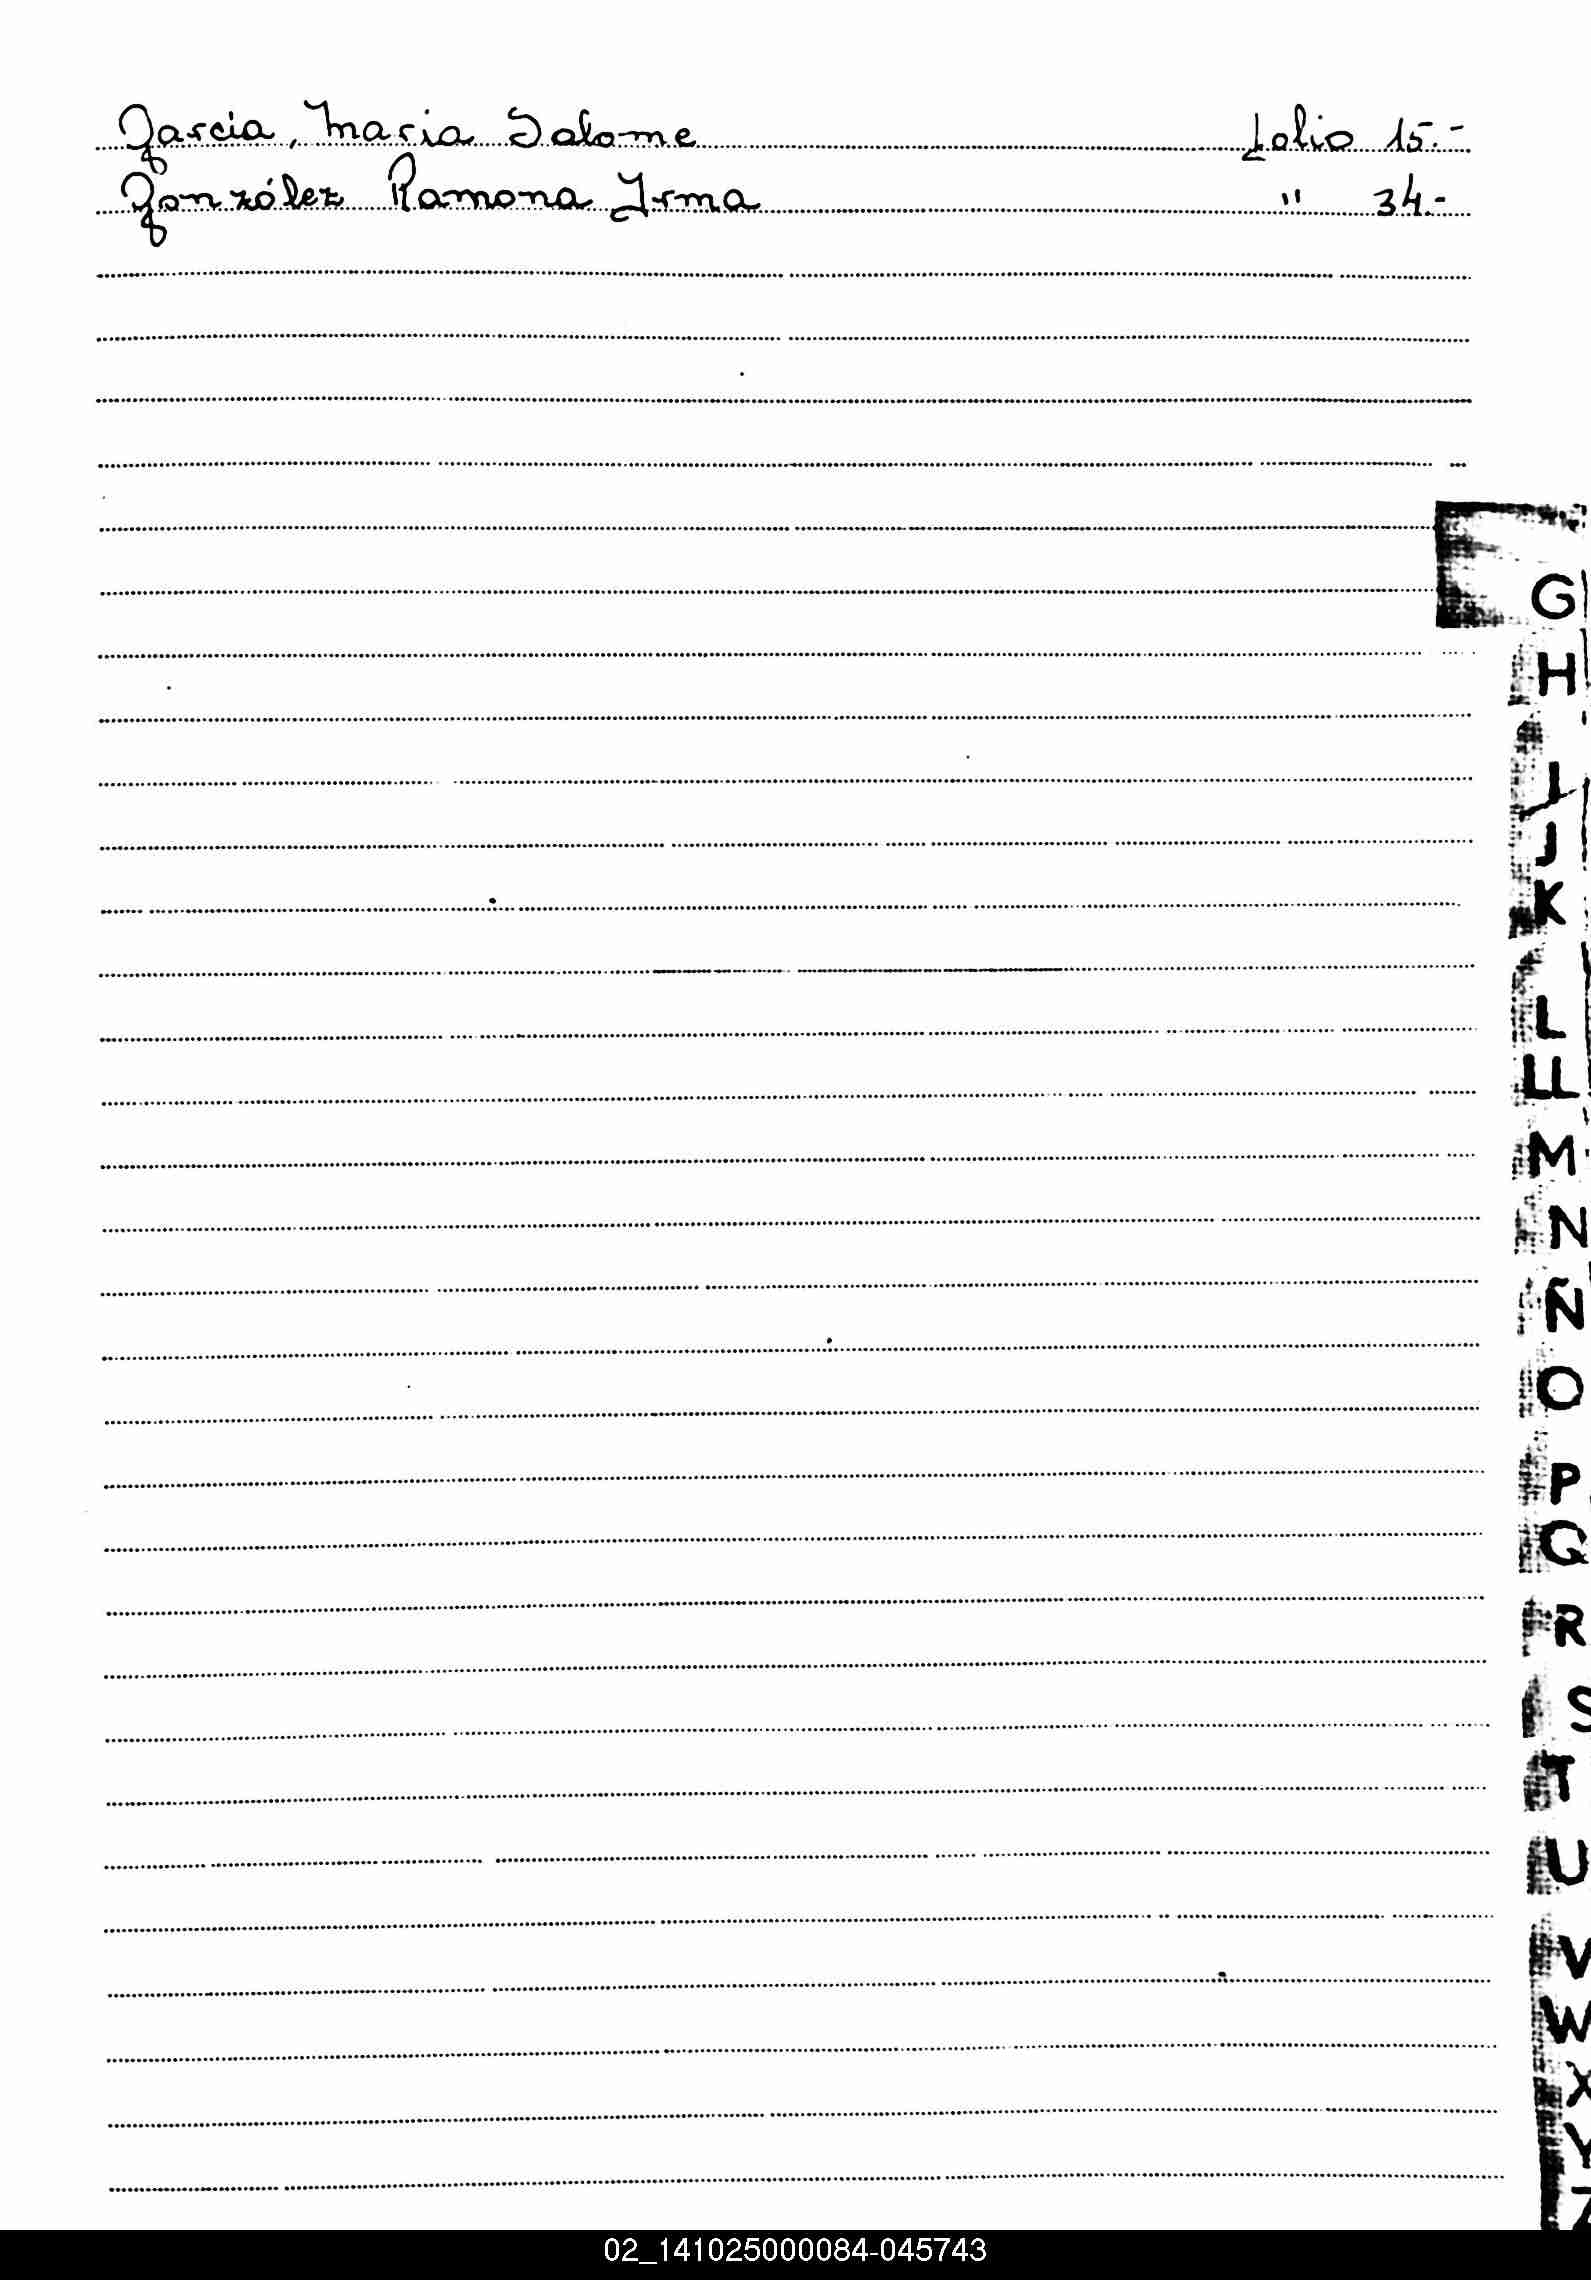 Garcia, Maria Salome Folio 15.-
González Ramona Irma " 34.-
G
H
I
J
K
L
LL
M
N
Ñ
O
P
Q
R
S
T
U
V
W
X
Y
Z
02_141025000084-045743